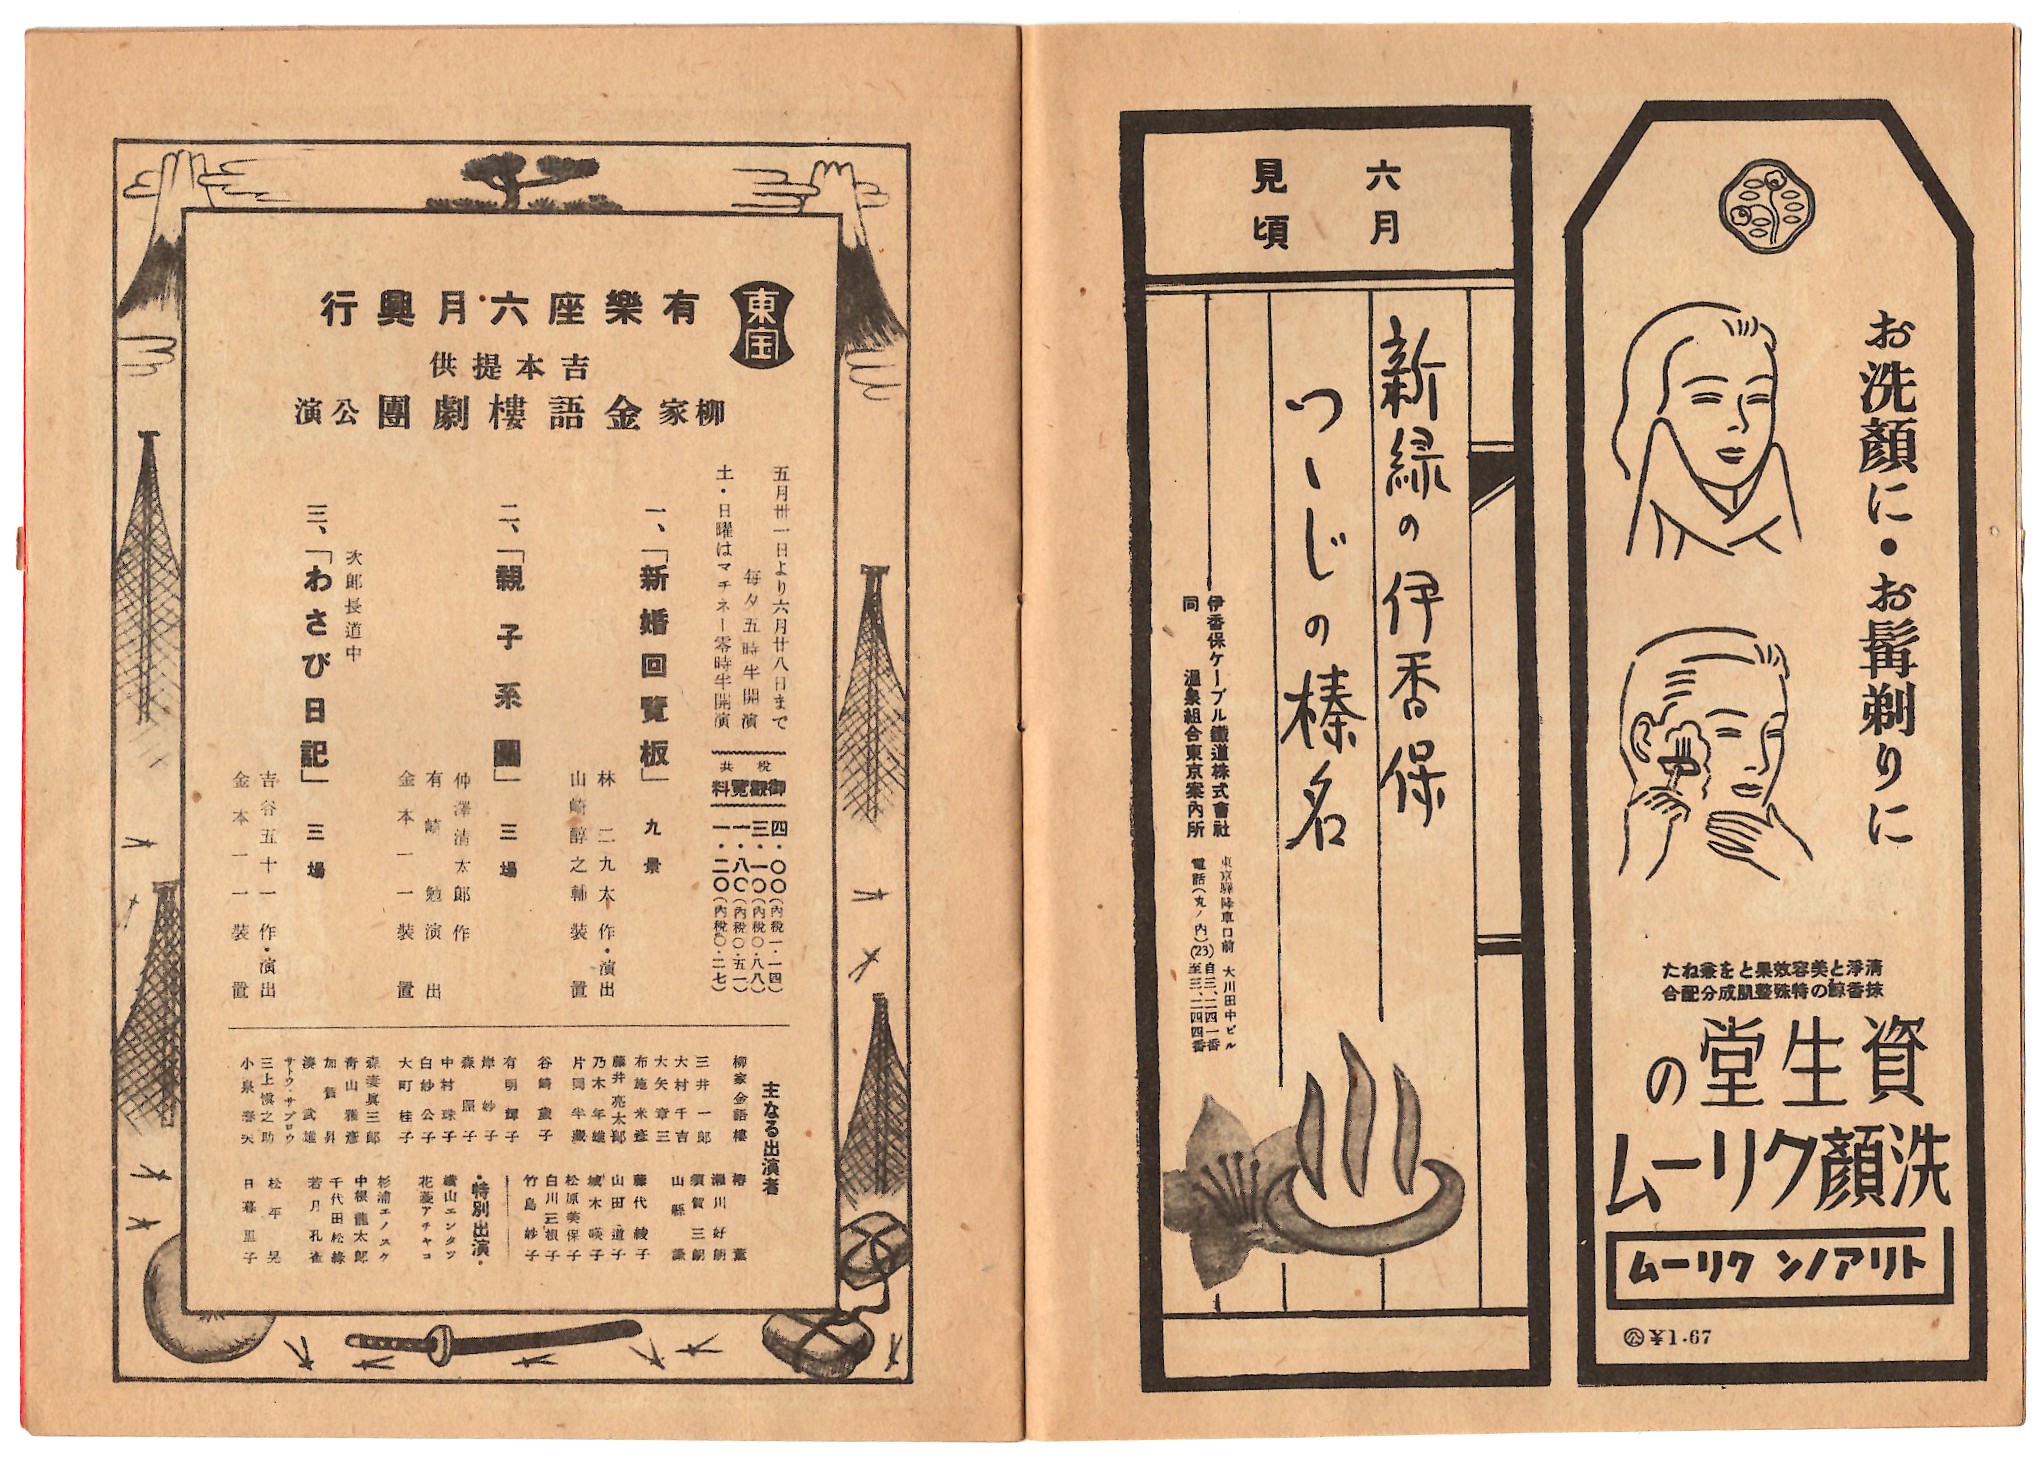 お洗顏に・お髯剃りに
清淨と美容效果とを兼ねた
抹香鯨の特殊整肌成分配合
資生堂の
洗顏クリーム
トリアノン クリーム
公 ¥1.67
六月
見頃
新緑の伊香保
つゝじの榛名
伊香保ケーブル鐵道株式會社
同 溫泉組合東京案內所
東京驛降車口前 大川田中ビル
電話(丸ノ內)(23)自三、二四一番
至三、二四四番
東宝
有樂座六月興行
吉本提供
柳家金語樓劇團公演
五月卅一日より六月廿八日まで
每夕五時半開演
土・日曜はマチネー零時半開演
稅共
御觀覽料
四・〇〇(內稅一・一四)
三・一〇(內稅〇・八八)
一・八〇(內稅〇・五一)
一・二〇(內稅〇・二七)
一、「新婚回覽板」 九景
林 二九太 作・演出
山崎醇之輔 裝置
二、「親子系圖」 三場
仲澤清太郎 作
有崎 勉 演出
金本一一 裝置
次郎長道中
三、「わさび日記」 三場
吉谷五十一 作・演出
金本一一 裝置
主なる出演者
柳家金語樓
三井一郎
大村千吉
大矢章三
布施米彥
藤井亮太郎
乃木年雄
片岡半藏
谷崎歲子
有明輝子
岸 妙子
森 照子
中村珠子
白紗公子
大町桂子
森妻眞三郎
靑山雅彥
加賀 昇
湊 武雄
サトウ・サブロウ
三上愼之助
小泉春矢
椿 薰
瀨川好朗
須賀三朗
山縣 謙
藤代綾子
山田道子
城木暎子
松原美保子
白川三椒子
竹島紗子
・特別出演・
橫山エンタツ
花菱アチャコ
杉浦エノスケ
中根龍太郎
千代田松綠
若月孔雀
松平 晃
日暮里子